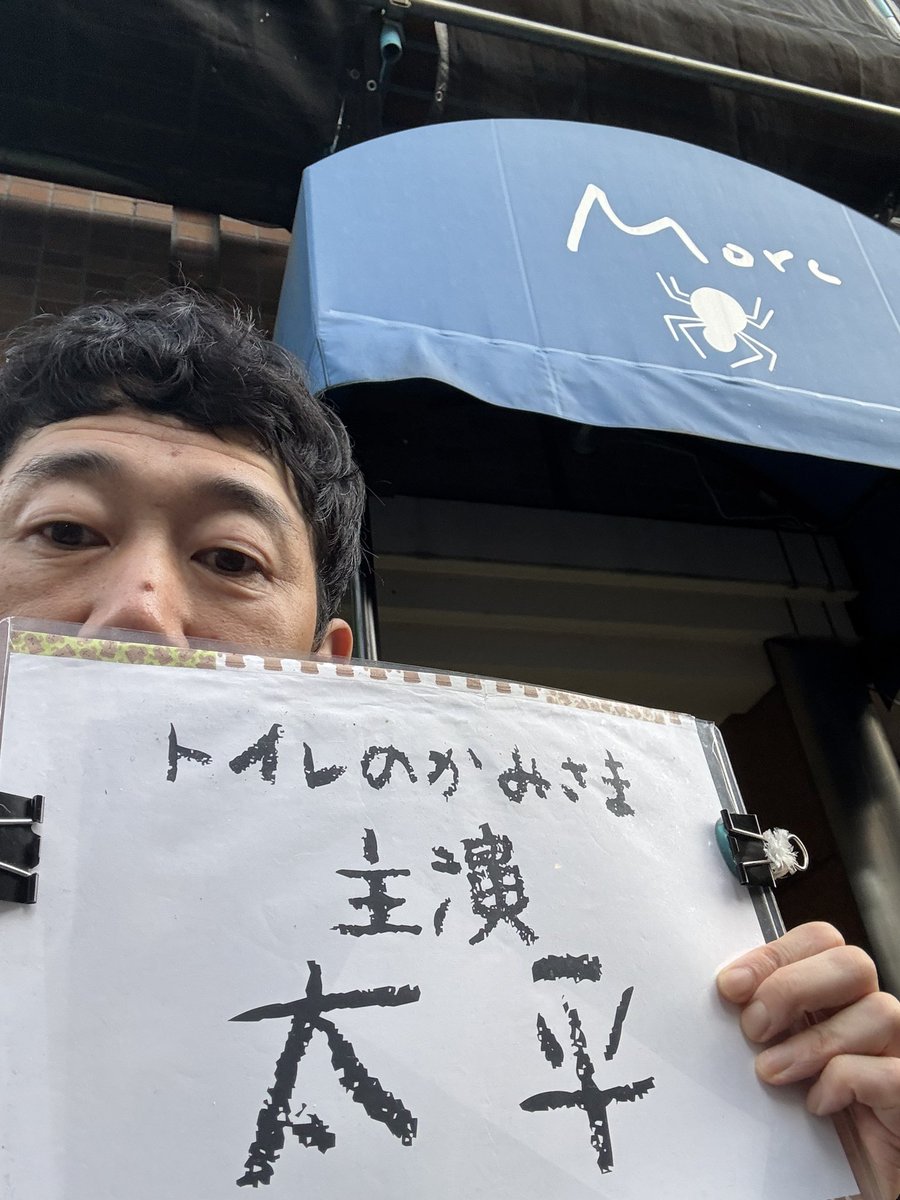 More
トイレのかみさま
主演
太平